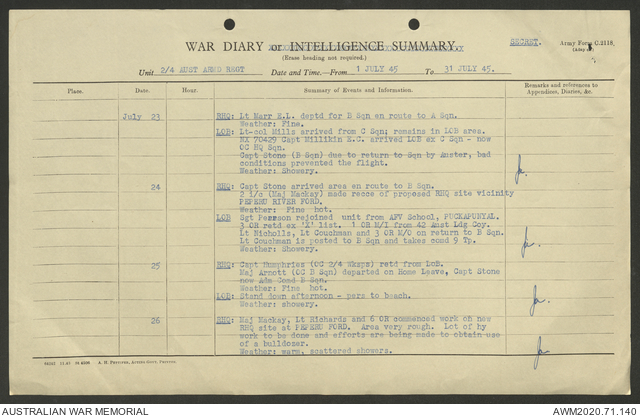 WAR DIARY or INTELLIGENCE SUMMARY.
SECRET.
Army Form C.2118,
(Erase heading not required.)
Unit 2/4 AUST ARMD REGT Date and Time.—From 1 JULY 45 To 31 JULY 45.
Place. Date. Hour. Summary of Events and Information. Remarks and references to Appendices, Diaries, &c.
July 23 RHQ: Lt Marr E.L. deptd for B Sqn en route to A Sqn.
Weather: Fine.
LOB: Lt-col Mills arrived from C Sqn; remains in LOB area.
NX 70429 Capt Millikin E.C. arrived LOB ex C Sqn - now
OC HQ Sqn.
Capt Stone (B Sqn) due to return to Sqn by Auster, bad
conditions prevented the flight.
Weather: Showery.
24 RHQ: Capt Stone arrived area en route to B Sqn.
2 i/c (Maj Mackay) made recce of proposed RHQ site vicinity
PEPERU RIVER FORD.
Weather: Fine hot.
LOB Sgt Pearson rejoined unit from AFV School, PUCKAPUNYAL.
3 OR retd ex 'X' list. 1 OR M/I from 42 Aust Ldg Coy.
Lt Nicholls, Lt Couchman and 3 OR M/O on return to B Sqn.
Lt Couchman is posted to B Sqn and takes comd 9 Tp.
Weather: Showery.
25 RHQ: Capt Humphries (OC 2/4 Wksps) retd from LOB.
Maj Arnott (OC B Sqn) departed on Home Leave, Capt Stone
now Adm Comd B Sqn.
Weather: Fine hot.
LOB: Stand down afternoon - pers to beach.
Weather: showery.
26 RHQ: Maj Mackay, Lt Richards and 6 OR commenced work on new
RHQ site at PEPERU FORD. Area very rough. Lot of hy
work to be done and efforts are being made to obtain use
of a bulldozer.
Weather: warm, scattered showers.
AUSTRALIAN WAR MEMORIAL
AWM2020.71.140